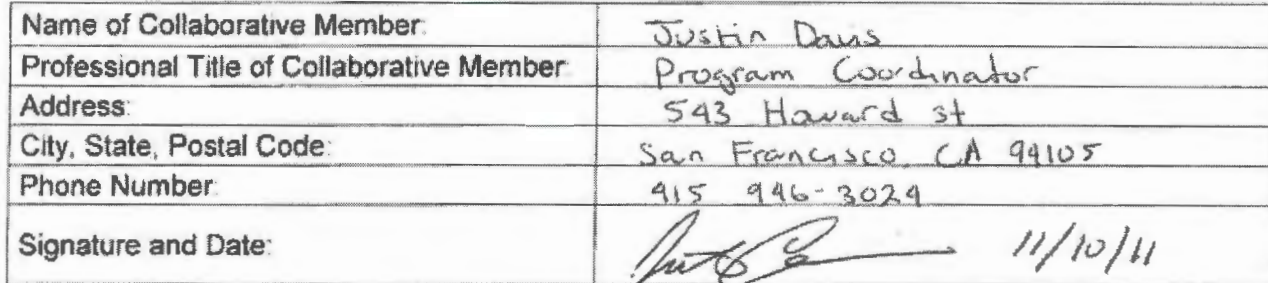 Name of Collaborative Member: Justin Davis
Professional Title of Collaborative Member Program Coordinator
Address: 543 Howard st
City, State, Postal Code: San Francisco, CA 94105
Phone Number: 415 946-3024
Signature and Date: 11/10/11